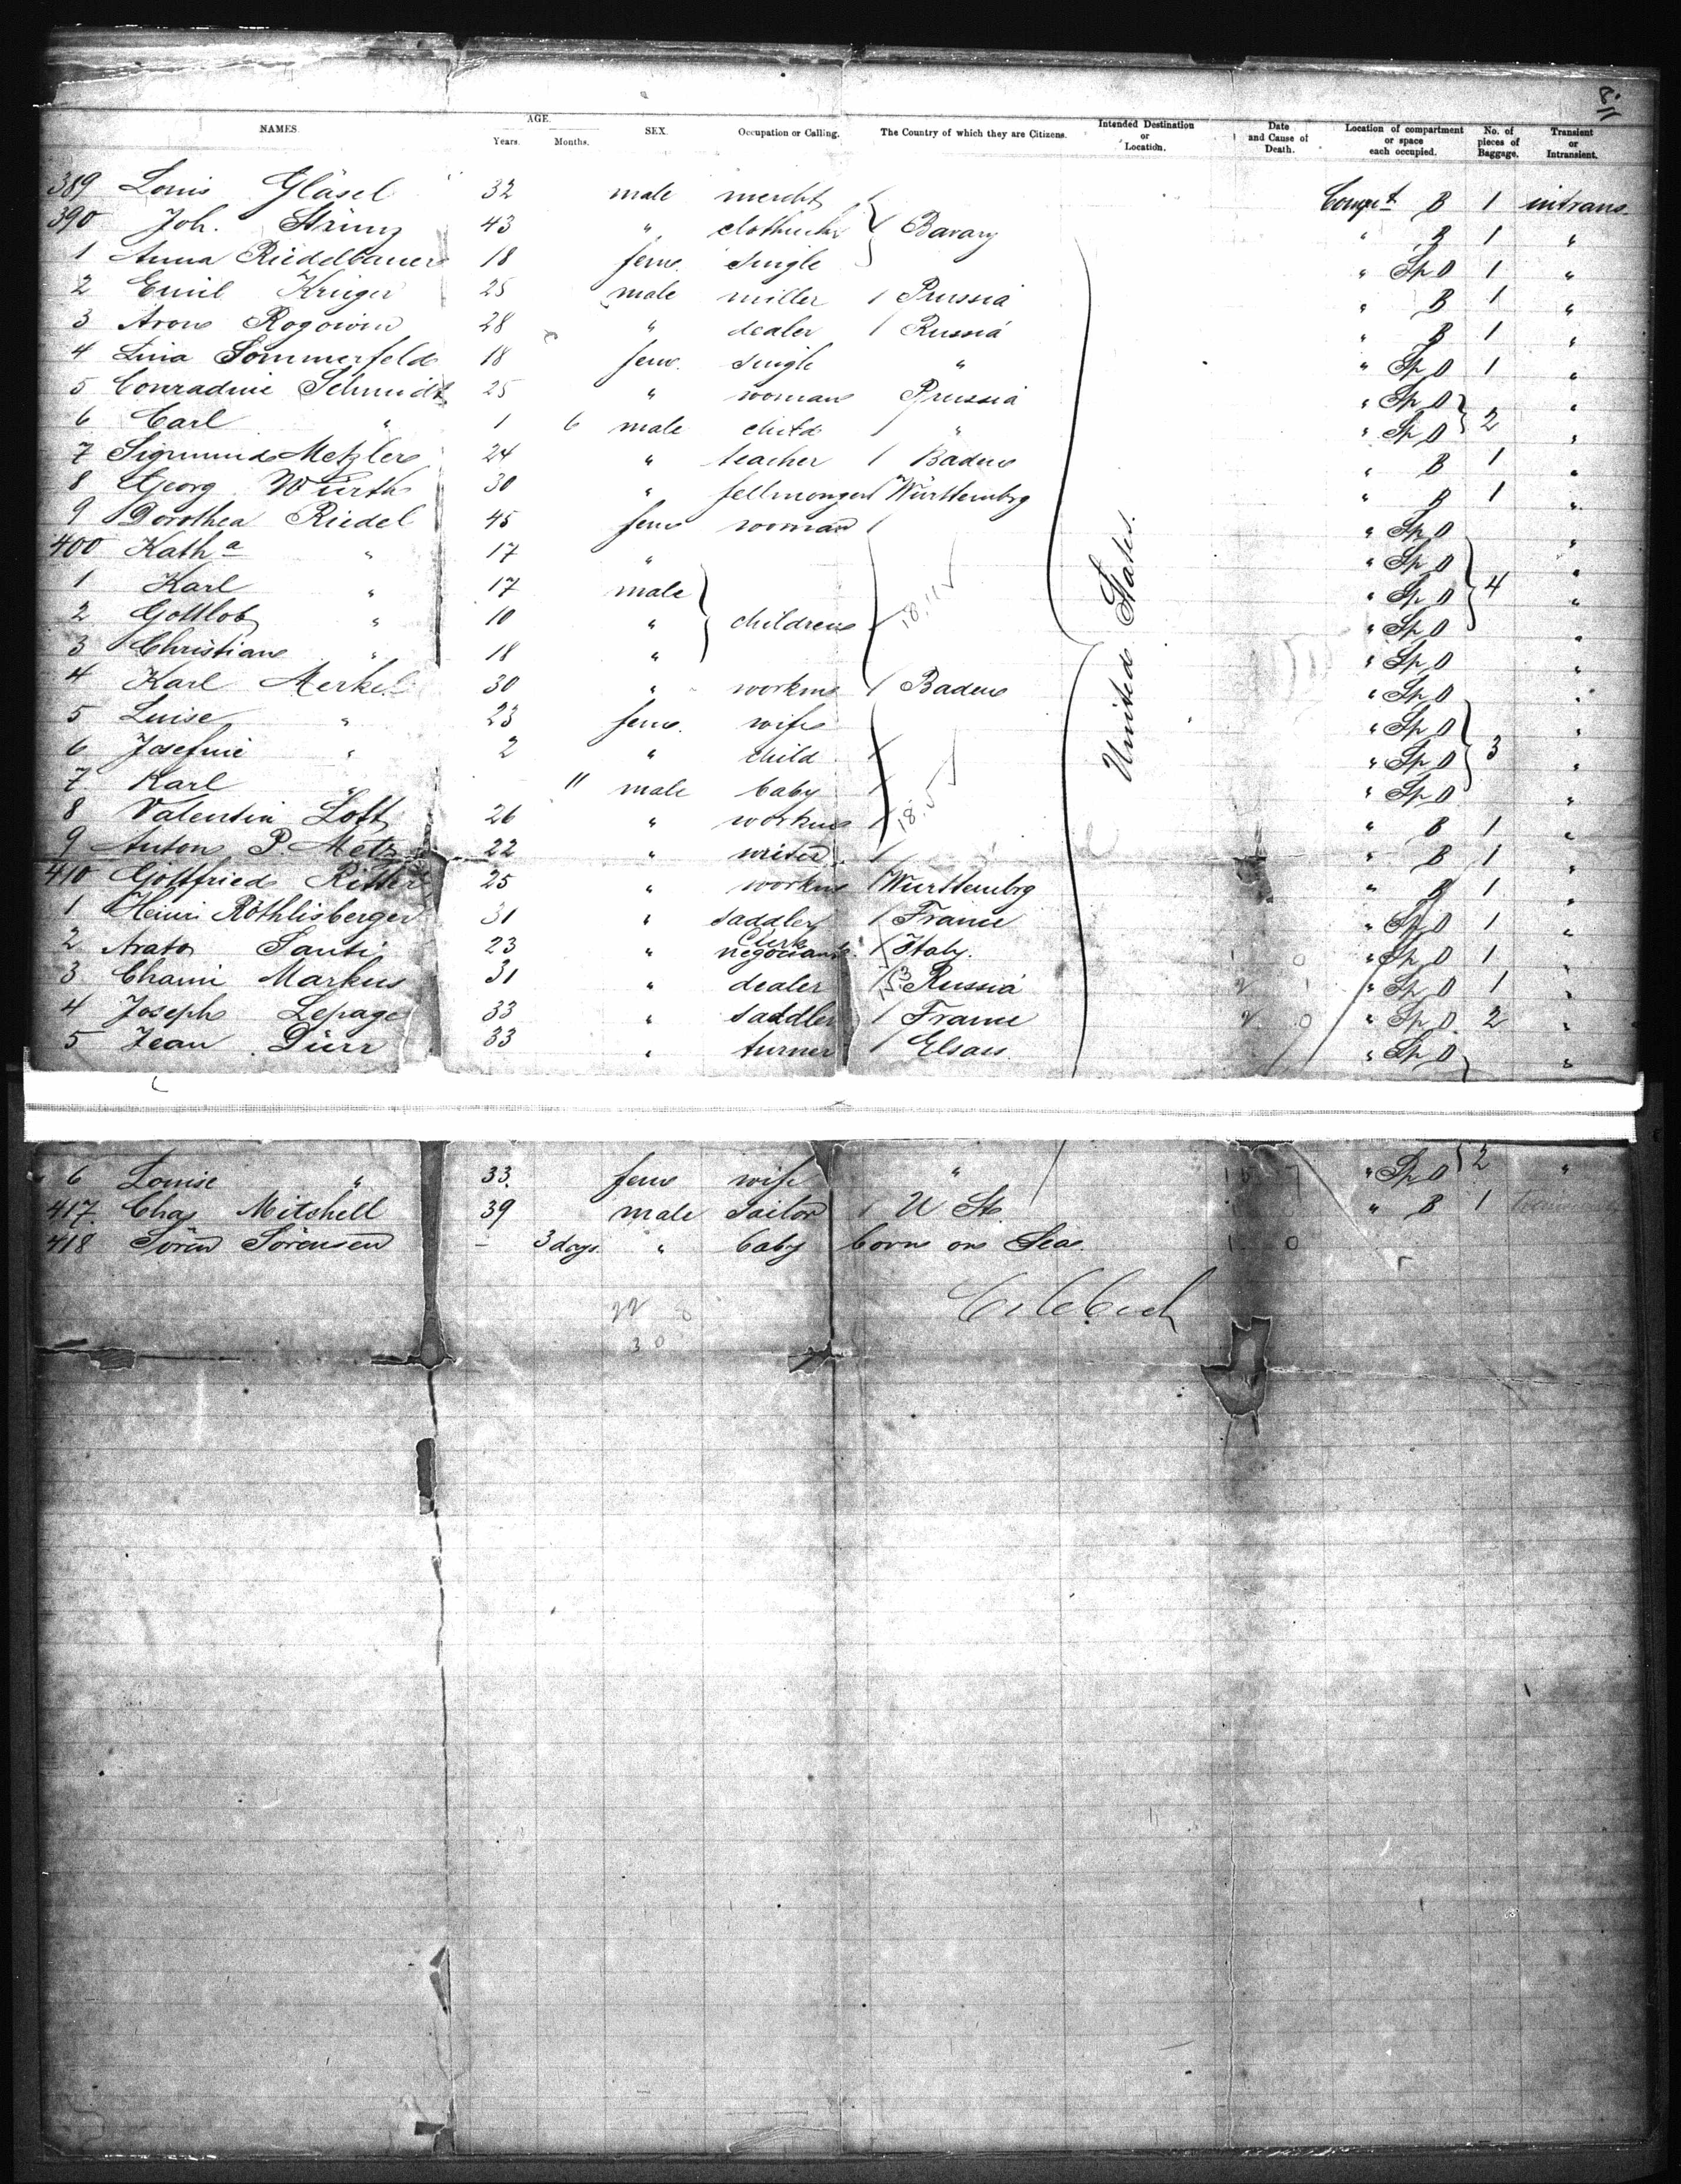 NAMES. AGE. Years. Months. SEX. Occupation or Calling. The Country of which they are Citizens. Intended Destination or Location. Date and Cause of Death. Location of compartment or space each occupied. No. of pieces of Baggage. Transient or Intransient.
389 Louis Gläsel 32 male mercht Compt B 1 intrans.
390 Joh. 43 " Bavary " B 1 "
1 Anna Riedelbauer 18 fem. single " Sp D 1 "
2 Emil Krüger 25 male miller / Prussia " B 1 "
3 Aron 28 " dealer / Russia " B 1 "
4 Lina Sommerfeld 18 fem. single " " Sp D 1 "
5 Conradine Schmidt 25 " woman Prussia " Sp D "
6 Carl " 1 6 male child " " Sp D 2 "
7 Sigmund Metzler 24 " teacher / Baden " B 1 "
8 Georg Würth 30 " fellmonger / Württembrg " B 1 "
9 Dorothea Riedel 45 fem woman / " Sp D "
400 Katha " 17 " " Sp D "
1 Karl " 17 male " Sp D 4 "
2 Gottlob " 10 " children " Sp D "
3 Christian " 18 " " Sp D "
4 Karl Merkel 30 " workm / Baden " Sp D "
5 Luise " 23 fem. wife " Sp D "
6 Josefine " 2 " child " Sp D 3 "
7 Karl " 11 male baby " Sp D "
8 Valentin Lott 26 " workm " B 1 "
9 Anton P. Metz 22 " writer / " B 1 "
410 Gottfried Ritter 25 " workm / Württembrg " B 1 "
1 Henri Röthlisberger 31 " saddler / France " Sp D 1 "
2 Santi 23 " Clerk negociant / Italy. " Sp D 1 "
3 Chaim Markus 31 " dealer / Russia " Sp D 1 "
4 Joseph Lepage 33 " saddler / France " Sp D 2 "
5 Jean Dürr 33 " turner / Elsass " Sp D "
United States.
6 Louise " 33. fem wife " " Sp D 2 "
417. Chas Mitshell 39 male Sailor / U Sts " B 1
418 Sören Sörensen - 3 days. " baby born on Sea.